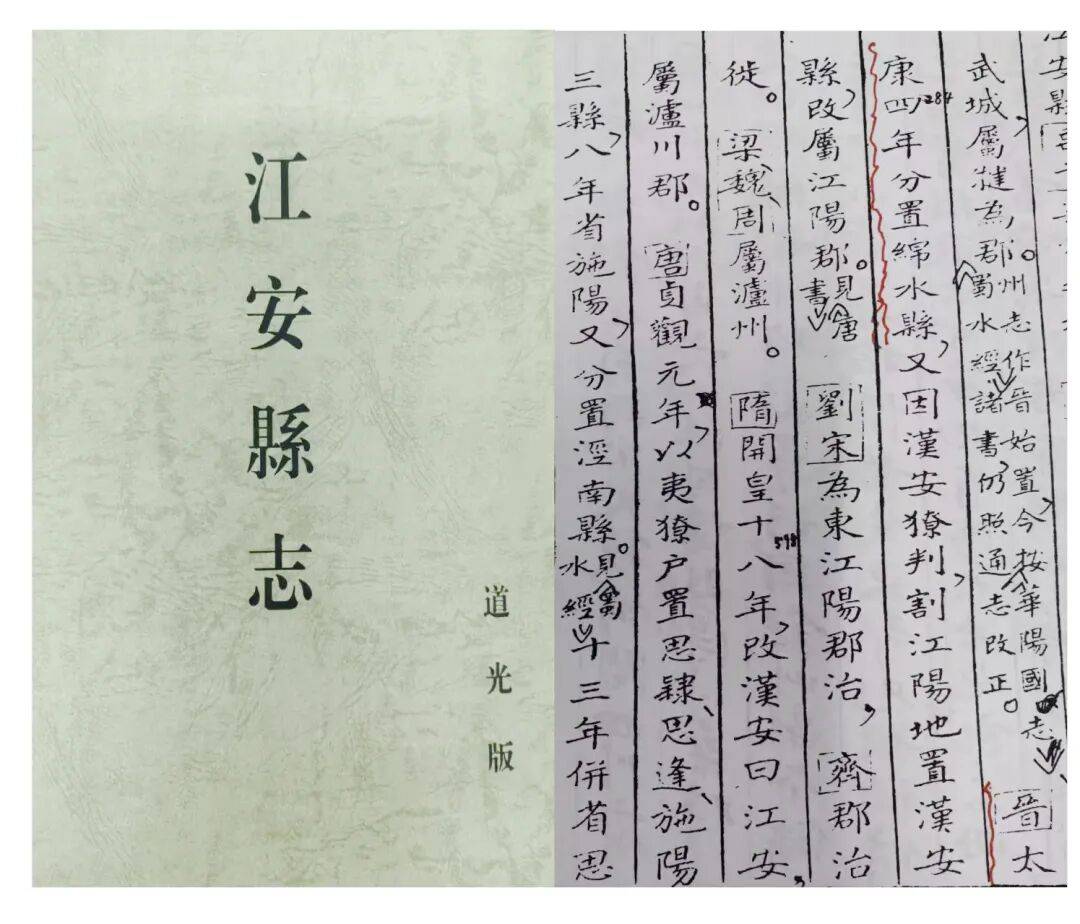 江安縣志
道光版
安縣
武城，屬犍為郡。州志作晉始置，今按《華陽國志》《蜀水經》諸書，仍照通志改正。晉太
康四284年分置綿水縣，又因漢安獠判，割江陽地置漢安
縣，改屬江陽郡。見《唐書》劉宋為東江陽郡治，齊郡治
徙。梁、魏、周屬瀘州。隋開皇十八598年，改漢安曰江安，
屬瀘川郡。唐貞觀元年，以夷獠户置思隸、思逢、施陽
三縣，八年省施陽，又分置涇南縣。見《蜀水經》十三年併省思